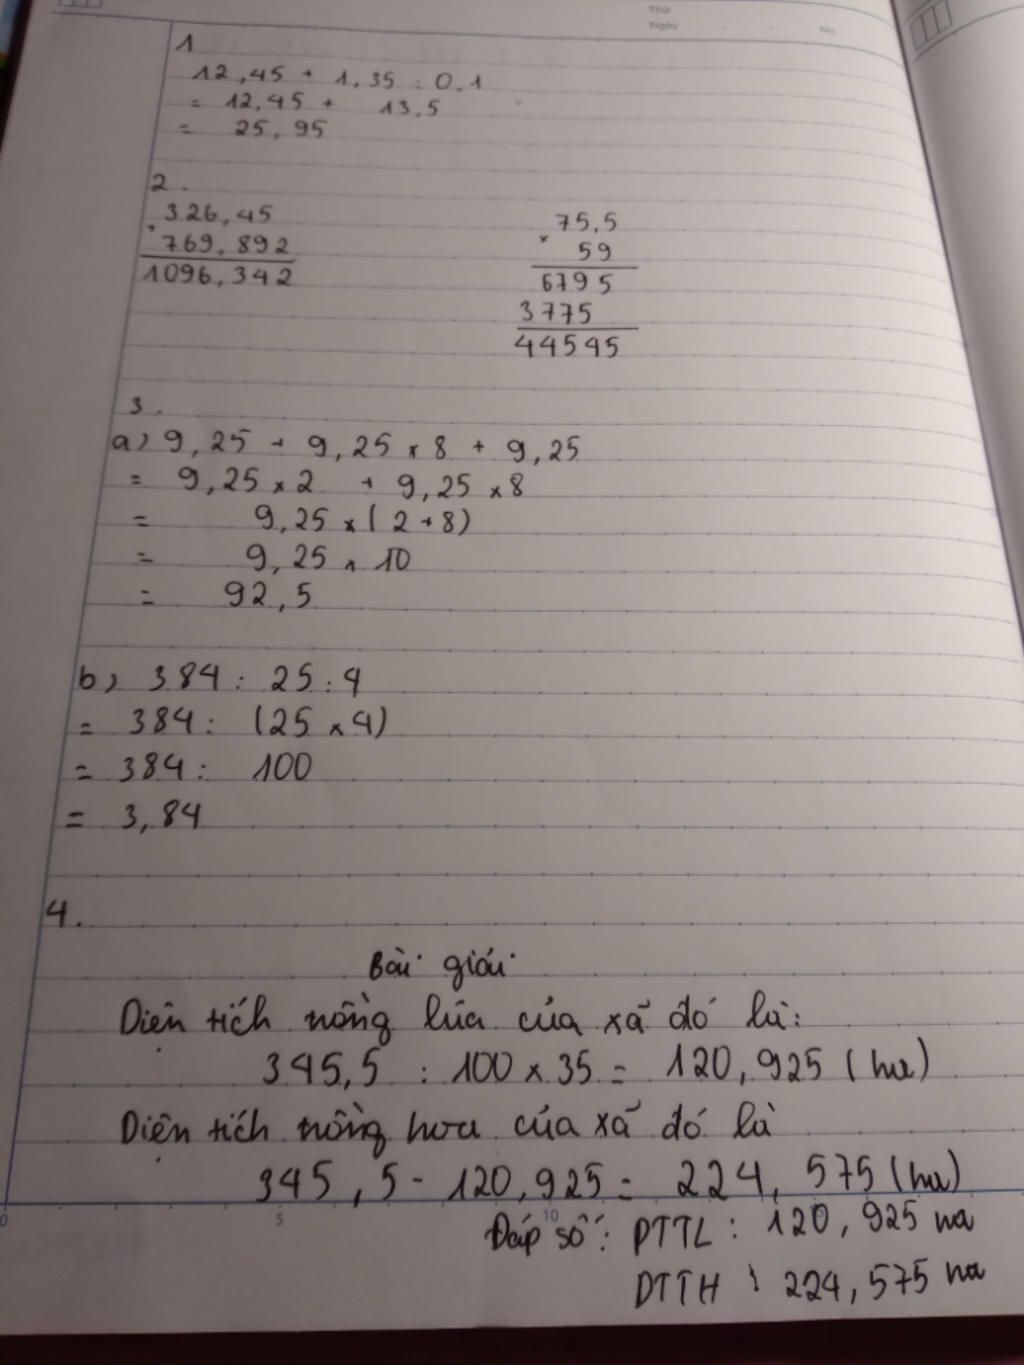 Thứ
Ngày
No.
1
12,45 + 1,35 : 0,1
= 12,45 + 13,5
= 25,95
2.
326,45
+ 769,892
1096,342
75,5
× 59
6795
3775
44545
3.
a) 9,25 + 9,25 × 8 + 9,25
= 9,25 × 2 + 9,25 × 8
= 9,25 × (2 + 8)
= 9,25 × 10
= 92,5
b) 384 : 25 : 4
= 384 : (25 × 4)
= 384 : 100
= 3,84
4.
Bài giải
Diện tích trồng lúa của xã đó là:
345,5 : 100 × 35 = 120,925 (ha)
Diện tích trồng hoa của xã đó là
345,5 - 120,925 = 224,575 (ha)
0 5 10
Đáp số: DTTL : 120,925 ha
DTTH : 224,575 ha